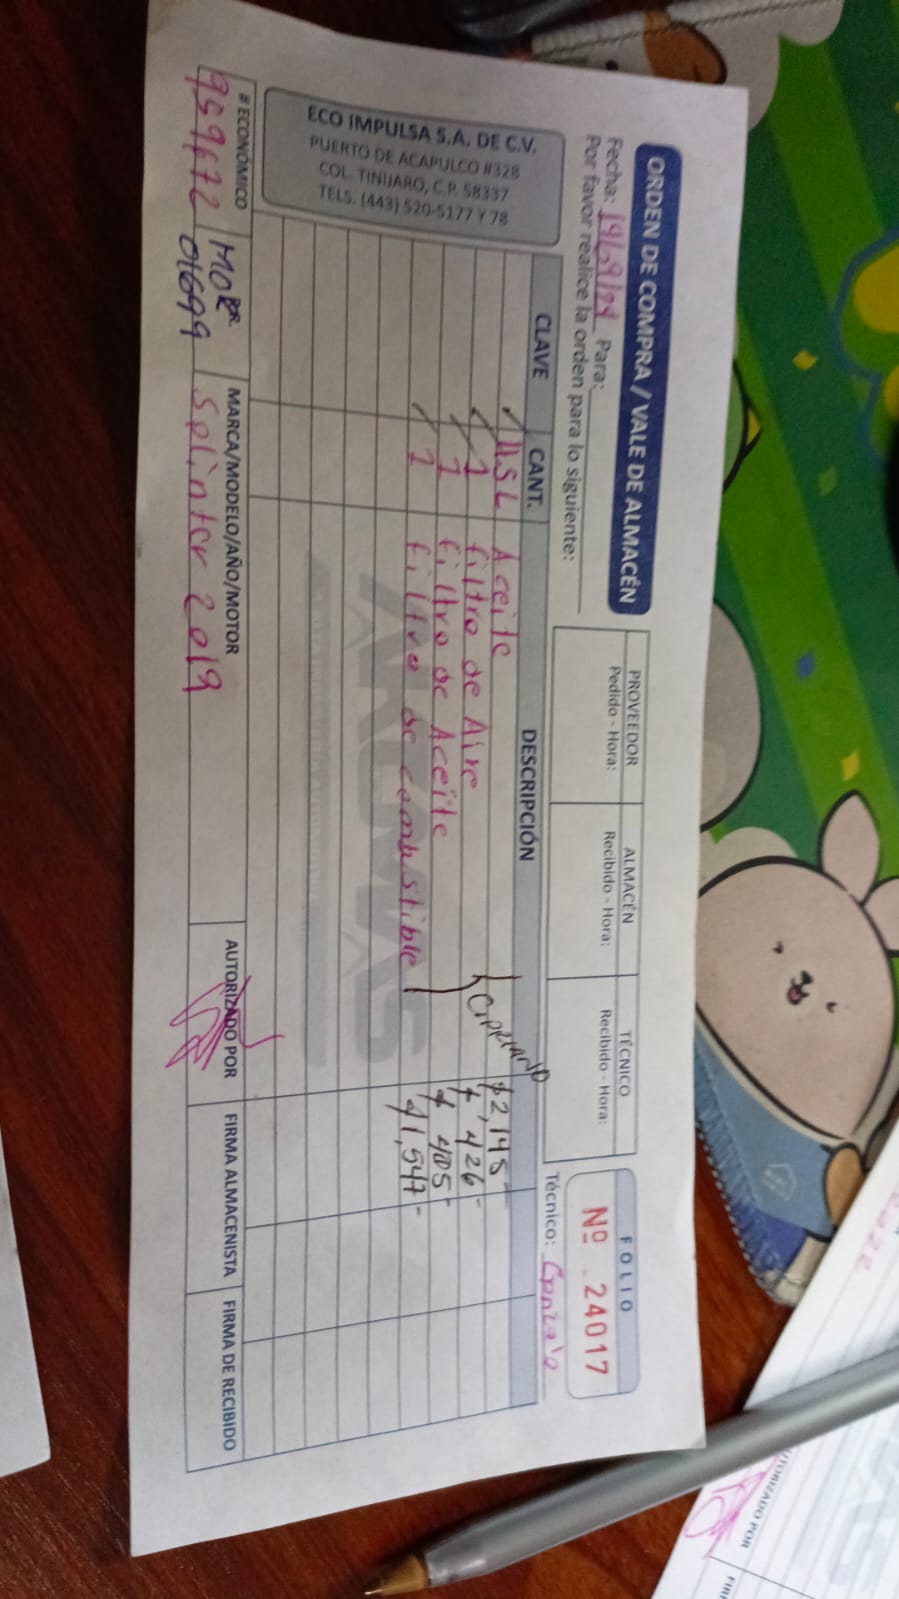 ORDEN DE COMPRA / VALE DE ALMACÉN
Fecha: 19/09/24 Para:
Por favor realice la orden para lo siguiente:
PROVEEDOR
Pedido - Hora:
ALMACÉN
Recibido - Hora:
TÉCNICO
Recibido - Hora:
FOLIO
Nº 24017
Técnico: Gonzalo
ECO IMPULSA S.A. DE C.V.
PUERTO DE ACAPULCO #328
COL. TINIJARO, C.P. 58337
TELS. (443) 520-5177 Y 78
CLAVE CANT. DESCRIPCIÓN
Aceite $2,145-
1 filtro de Aire $ 426-
1 filtro de Aceite $ 405-
1 filtro de combustible $1,547-
CIPRIANO
ARGMAS
# ECONÓMICO
MARCA/MODELO/AÑO/MOTOR
AUTORIZADO POR
FIRMA ALMACENISTA
FIRMA DE RECIBIDO
01699 Splinter 2019
UTORIZADO POR
FIR